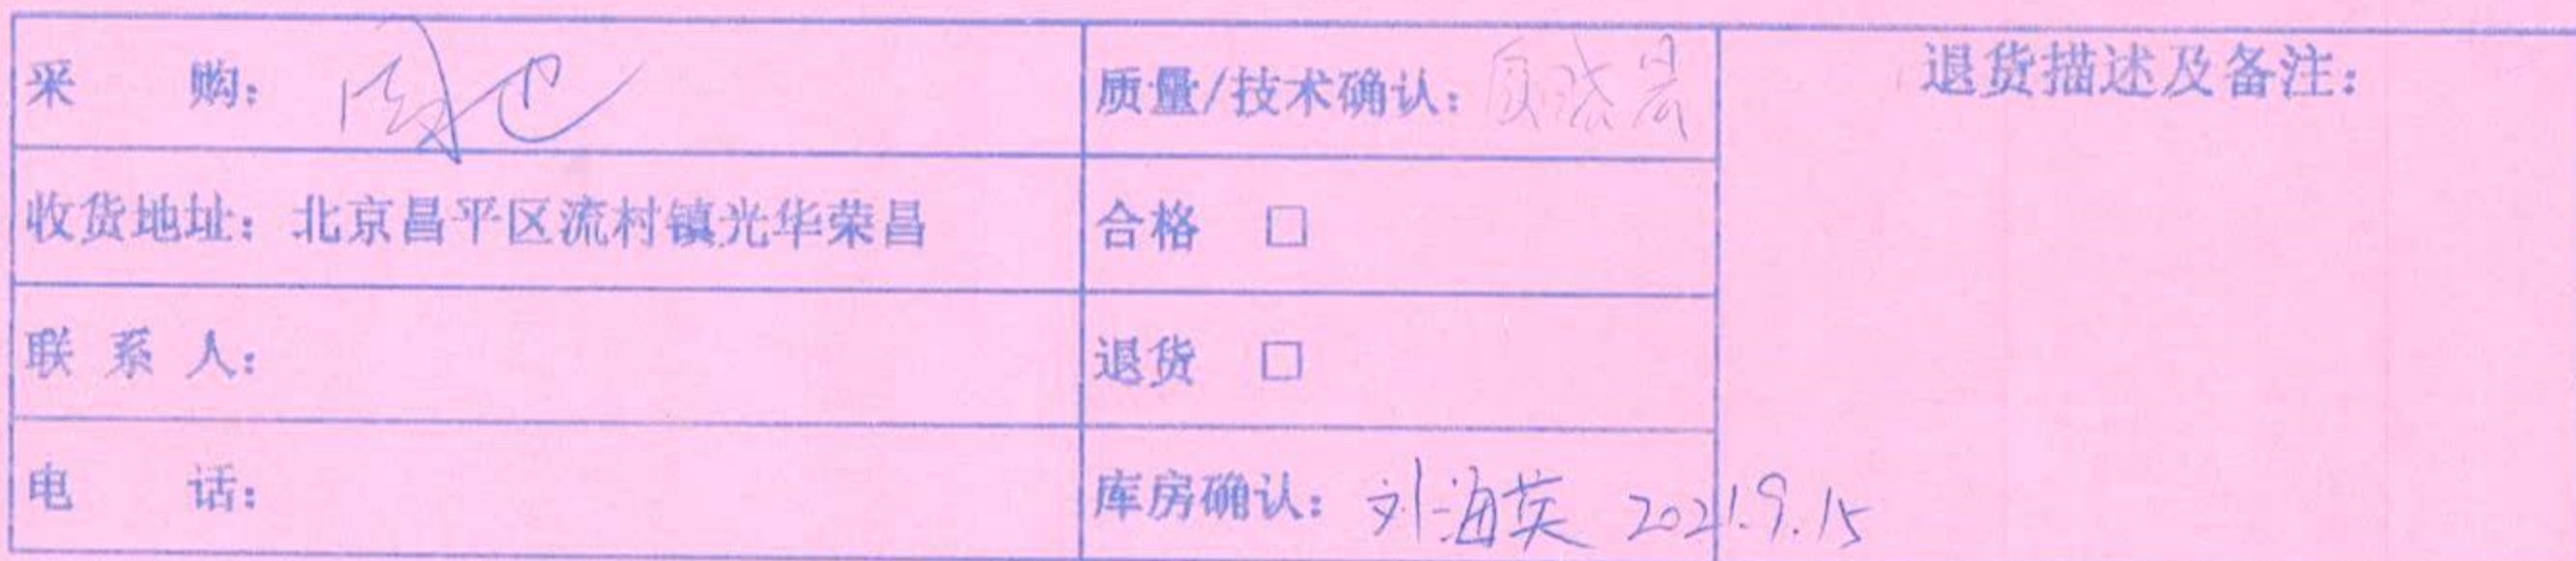 采 购:
质量/技术确认:
退货描述及备注:
收货地址: 北京昌平区流村镇光华荣昌
合格 □
联 系 人:
退货 □
电 话:
库房确认: 刘海英 2021.9.15